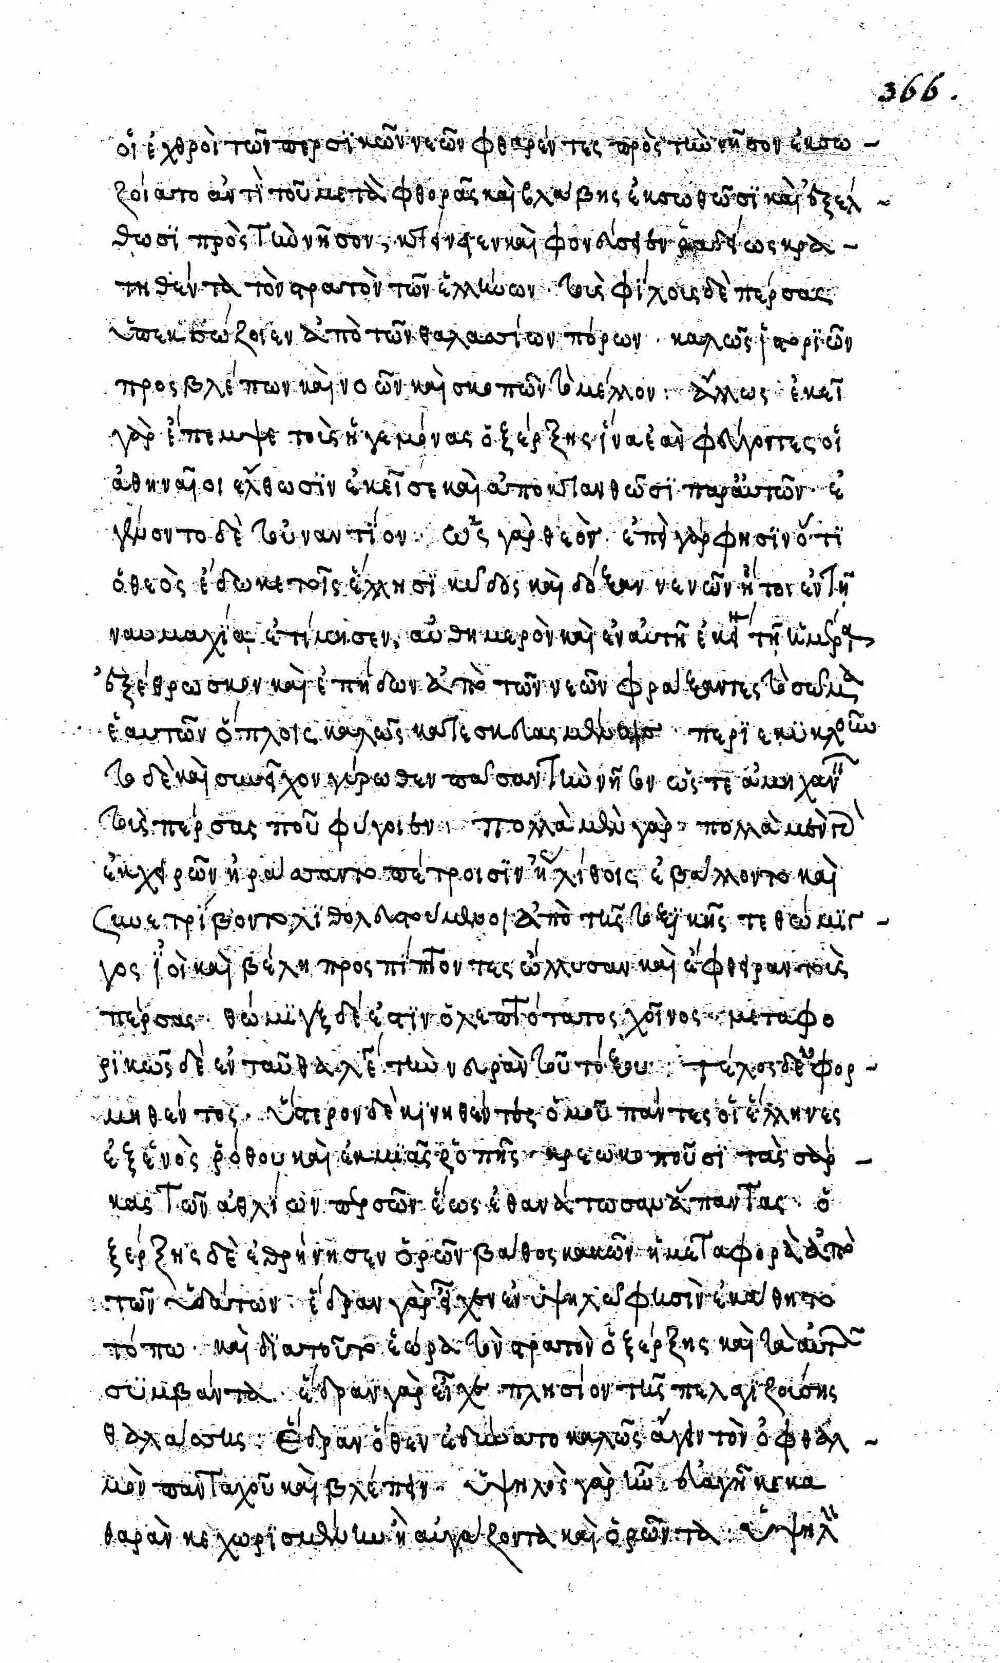 366.
οἱ ἐχθροὶ τῶν περσϊκῶν νεῶν φθαρέντες πρὸς τὴν νῆσον ἐκσω -
ζοίατο ἀντὶ τοῦ μετὰ φθορᾶς καὶ βλάβης ἐκσωθῶσϊ καὶ ἐξέλ -
θωσϊ πρὸς τὴν νῆσον, κτείνειεν καὶ φονεύσειεν ῥαδίως κρα -
τηθέντα τὸν στρατὸν τῶν ἑλλήνων. τοὺς φίλους δὲ πέρσας
ὑπεκσώζοιεν ἀπὸ τῶν θαλασσίων πόρων. καλῶς ἱστορϊῶν
προςβλέπων καὶ νοῶν καὶ σκοπῶν τὸ μέλλον. ἄλλως ἐκεῖ
γὰρ ἔπεμψε τοὺς ἡγεμόνας ὁ ξέρξης ἵνα ἐὰν φεύγοντες οἱ
ἀθηναῖοι ἔλθωσϊν ἐκεῖσε καὶ ἀποκτανθῶσϊ παρ' αὐτῶν. ἐ
γένοντο δὲ τοὐναντίον. ὡς γὰρ θεὸς. ἐπεὶ γὰρ φησϊν ὅτϊ
ὁ θεὸς ἔδωκε τοῖς ἕλλησϊ κῦδος καὶ δόξαν νεῶν ἤτοι ἐν τῇ
ναυμαχίᾳ ἐτίμησεν, αὐθημερὸν καὶ ἐν αὐτῇ ἐκείνη τῇ ἡμέρᾳ
ἐξέθρωσκον καὶ ἐπήδων ἀπὸ τῶν νεῶν φράξαντες τὸ σῶμα
ἑαυτῶν ὅπλοις καλῶς κατεσκευασμένοις περϊεκϋκλοῦν
το δὲ καὶ συνεῖχον γύρωθεν πᾶσαν τὴν νῆσον ὥςτε ἀμηχανεῖν
τοὺς πέρσας ποῦ φύγοιεν. πολλὰ μὲν γὰρ. πολλὰ μέντοι
ἐκ χειρῶν ἠράσσοντο πέτροισϊν ἢ λίθοις ἐβάλλοντο καὶ
συνετρίβοντο λϊθολευστούμενοι ἀπὸ τῆς τοξϊκῆς τε θώμϊγ -
γος ἰοὶ καὶ βέλη προςπίπτοντες ὤλλυσαν καὶ ἔφθειραν τοὺς
πέρσας. θώμϊγξ δέ ἐστϊν ὁ λεπτότατος χοῖνος. μεταφο
ρϊκῶς δὲ ἐνταῦθα λέγει τὴν νευρὰν τοῦ τόξου. τέλος δ' ἐφορ -
μηθέντος. ὕστερον δὲ κϊνηθέντες ὁμοῦ πάντες οἱ ἕλληνες
ἐξ ἑνὸς ῥόθου καὶ ἐκ μϊᾶς ῥοπῆς κρεωκοποῦσϊ τὰς σάρ -
κας τῶν ἀθλίων περσῶν ἕως ἐθανάτωσαν ἅπαντας. ὁ
ξέρξης δὲ ἐθρήνησεν ὁρῶν βάθος κακῶν ἡ μεταφορὰ ἀπὸ
τῶν ὑδάτων. ἕδραν γὰρ εἶχον ἐν ὑψηλῷ φησὶν ἐκάθητο
τόπω. καὶ δϊατοῦτο ἑώρα τὸν στρατὸν ὁ ξέρξης καὶ τὰ αὐτῷ
σϋμβάντα. ἕδραν γὰρ εἶχε πλησίον τῆς πελαγϊζούσης
θαλάσσης. ἕδραν ὅθεν ἐδύνατο καλῶς ἄγειν τὸν ὀφθαλ -
μὸν πανταχοῦ καὶ βλέπειν. ὑψηλὸς γὰρ ἦν. εὐαγῆ κεκα
θαρὰν κεχωρϊσμένην ἢ αὐγάζοντα καὶ ὁρῶντα. ὑψηλὸν